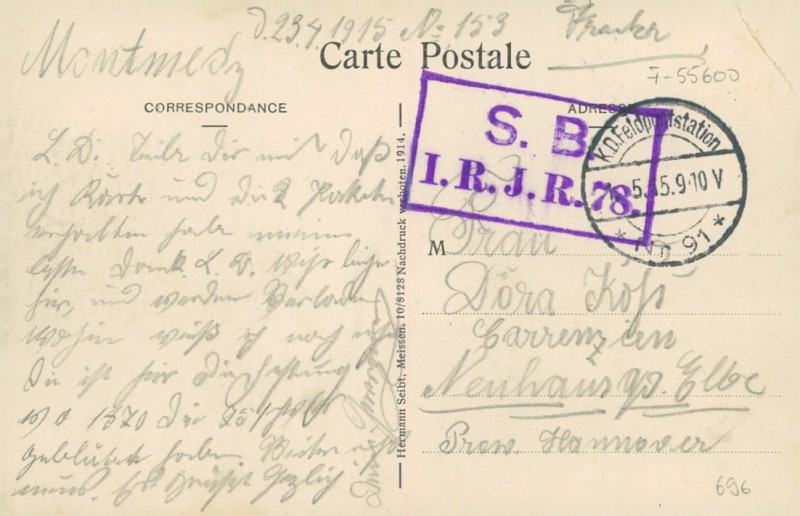 d. 23.4.1915 No 153
Montmedy
Carte Postale
F-55600
CORRESPONDANCE
ADRESSE
S. B.
I. R. J. R. 78.
K.D. Feldpoststation
5.15.9-10 V
* Nr. 91 *
L. D. Teile Dir mit daß
ich Karte und die 2 Pakete
erhalten habe meinen
Dank. L. D. Wir liegen
hier, und werden Verladen
Wohin weiß ich noch nicht
Die ist hir die Festung
wo 1870 die
geblutet haben. Weiter nichts
neues. Es Grüßt Herzlich
Hermann Seibt, Meissen. 10/8128 Nachdruck verboten. 1914.
M
Frau
Dora Köhs
Carrenzien
Neuhaus a/d. Elbe
Prov. Hannover
696